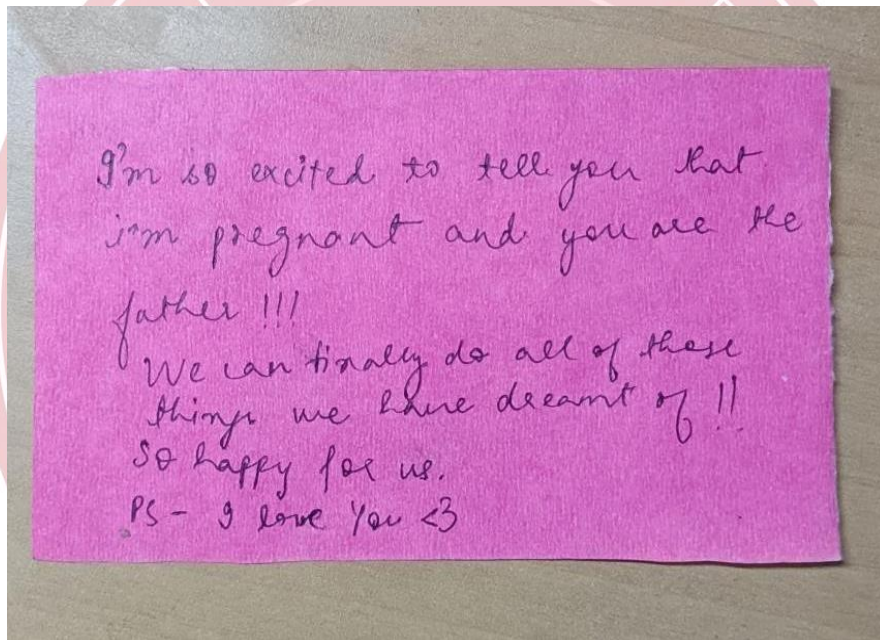 I'm so excited to tell you that
i'm pregnant and you are the
father !!!
We can finally do all of those
things we have dreamt of !!
So happy for us.
PS - I love You <3